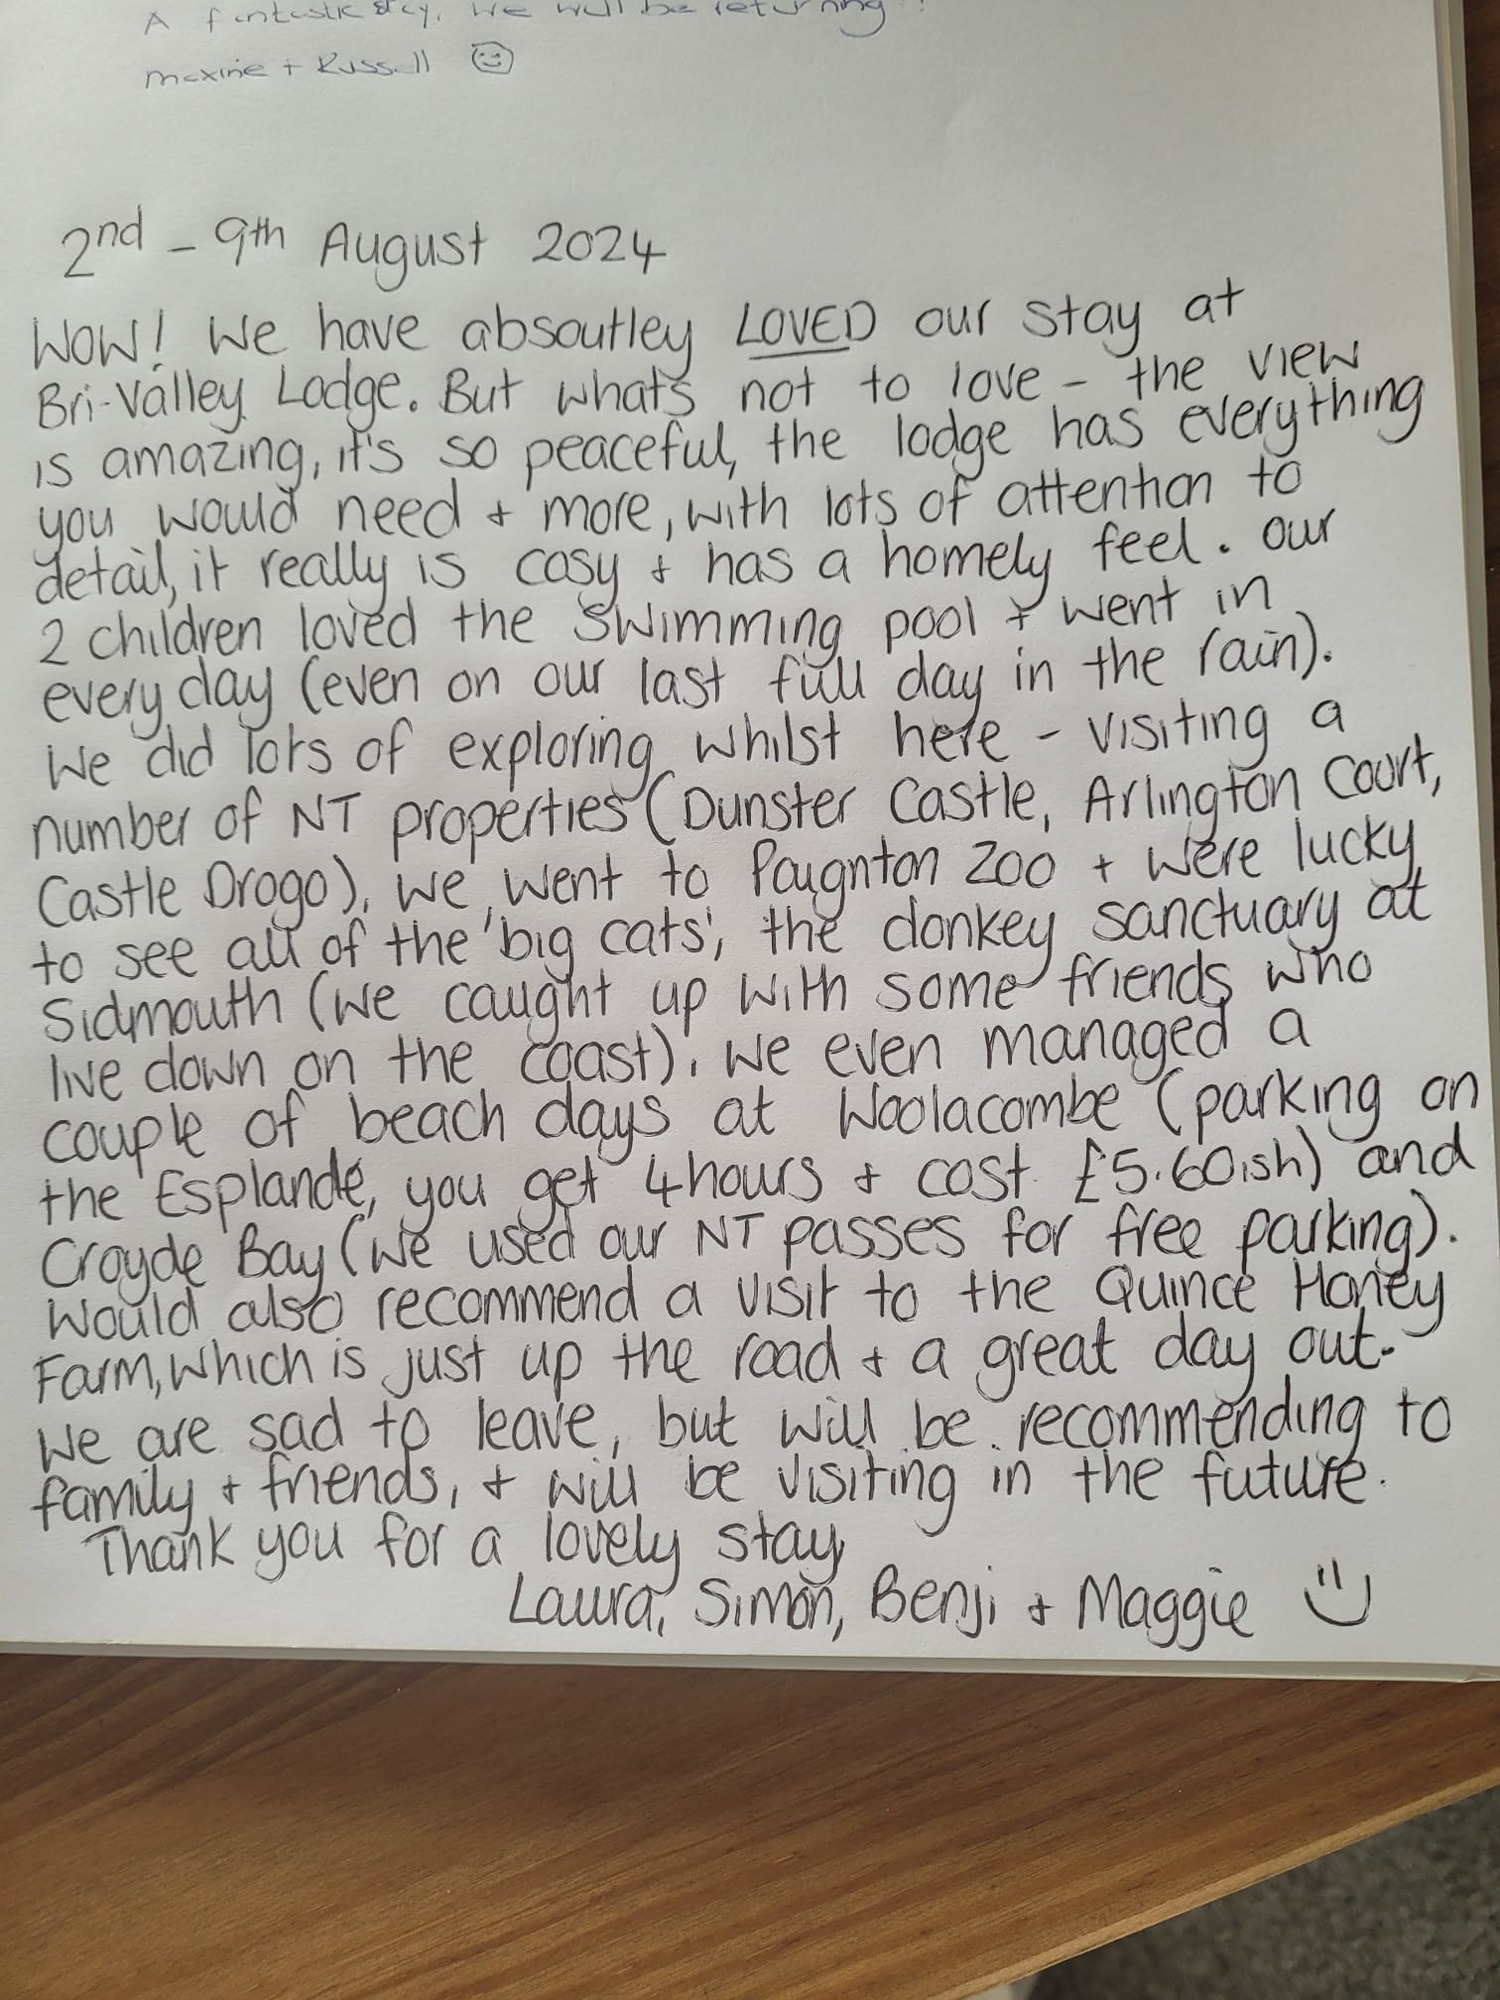 A fantastic stay, we will be returning!
Maxine + Russell
2nd - 9th August 2024
WOW! We have absoutley LOVED our stay at
Bri-Valley Lodge. But whats not to love - the view
is amazing, it's so peaceful, the lodge has everything
you would need + more, with lots of attention to
detail, it really is cosy + has a homely feel. Our
2 children loved the swimming pool + went in
every day (even on our last full day in the rain).
We did lots of exploring whilst here - visiting a
number of NT properties (Dunster Castle, Arlington Court,
Castle Drogo), we went to Paignton Zoo + were lucky
to see all of the 'big cats', the donkey sanctuary at
Sidmouth (we caught up with some friends who
live down on the coast). We even managed a
couple of beach days at Woolacombe (parking on
the Esplande, you get 4 hours + cost £5.60ish) and
Croyde Bay (we used our NT passes for free parking).
Would also recommend a visit to the Quince Honey
Farm, which is just up the road + a great day out.
We are sad to leave, but will be recommending to
family + friends, + will be visiting in the future.
Thank you for a lovely stay
Laura, Simon, Benji + Maggie